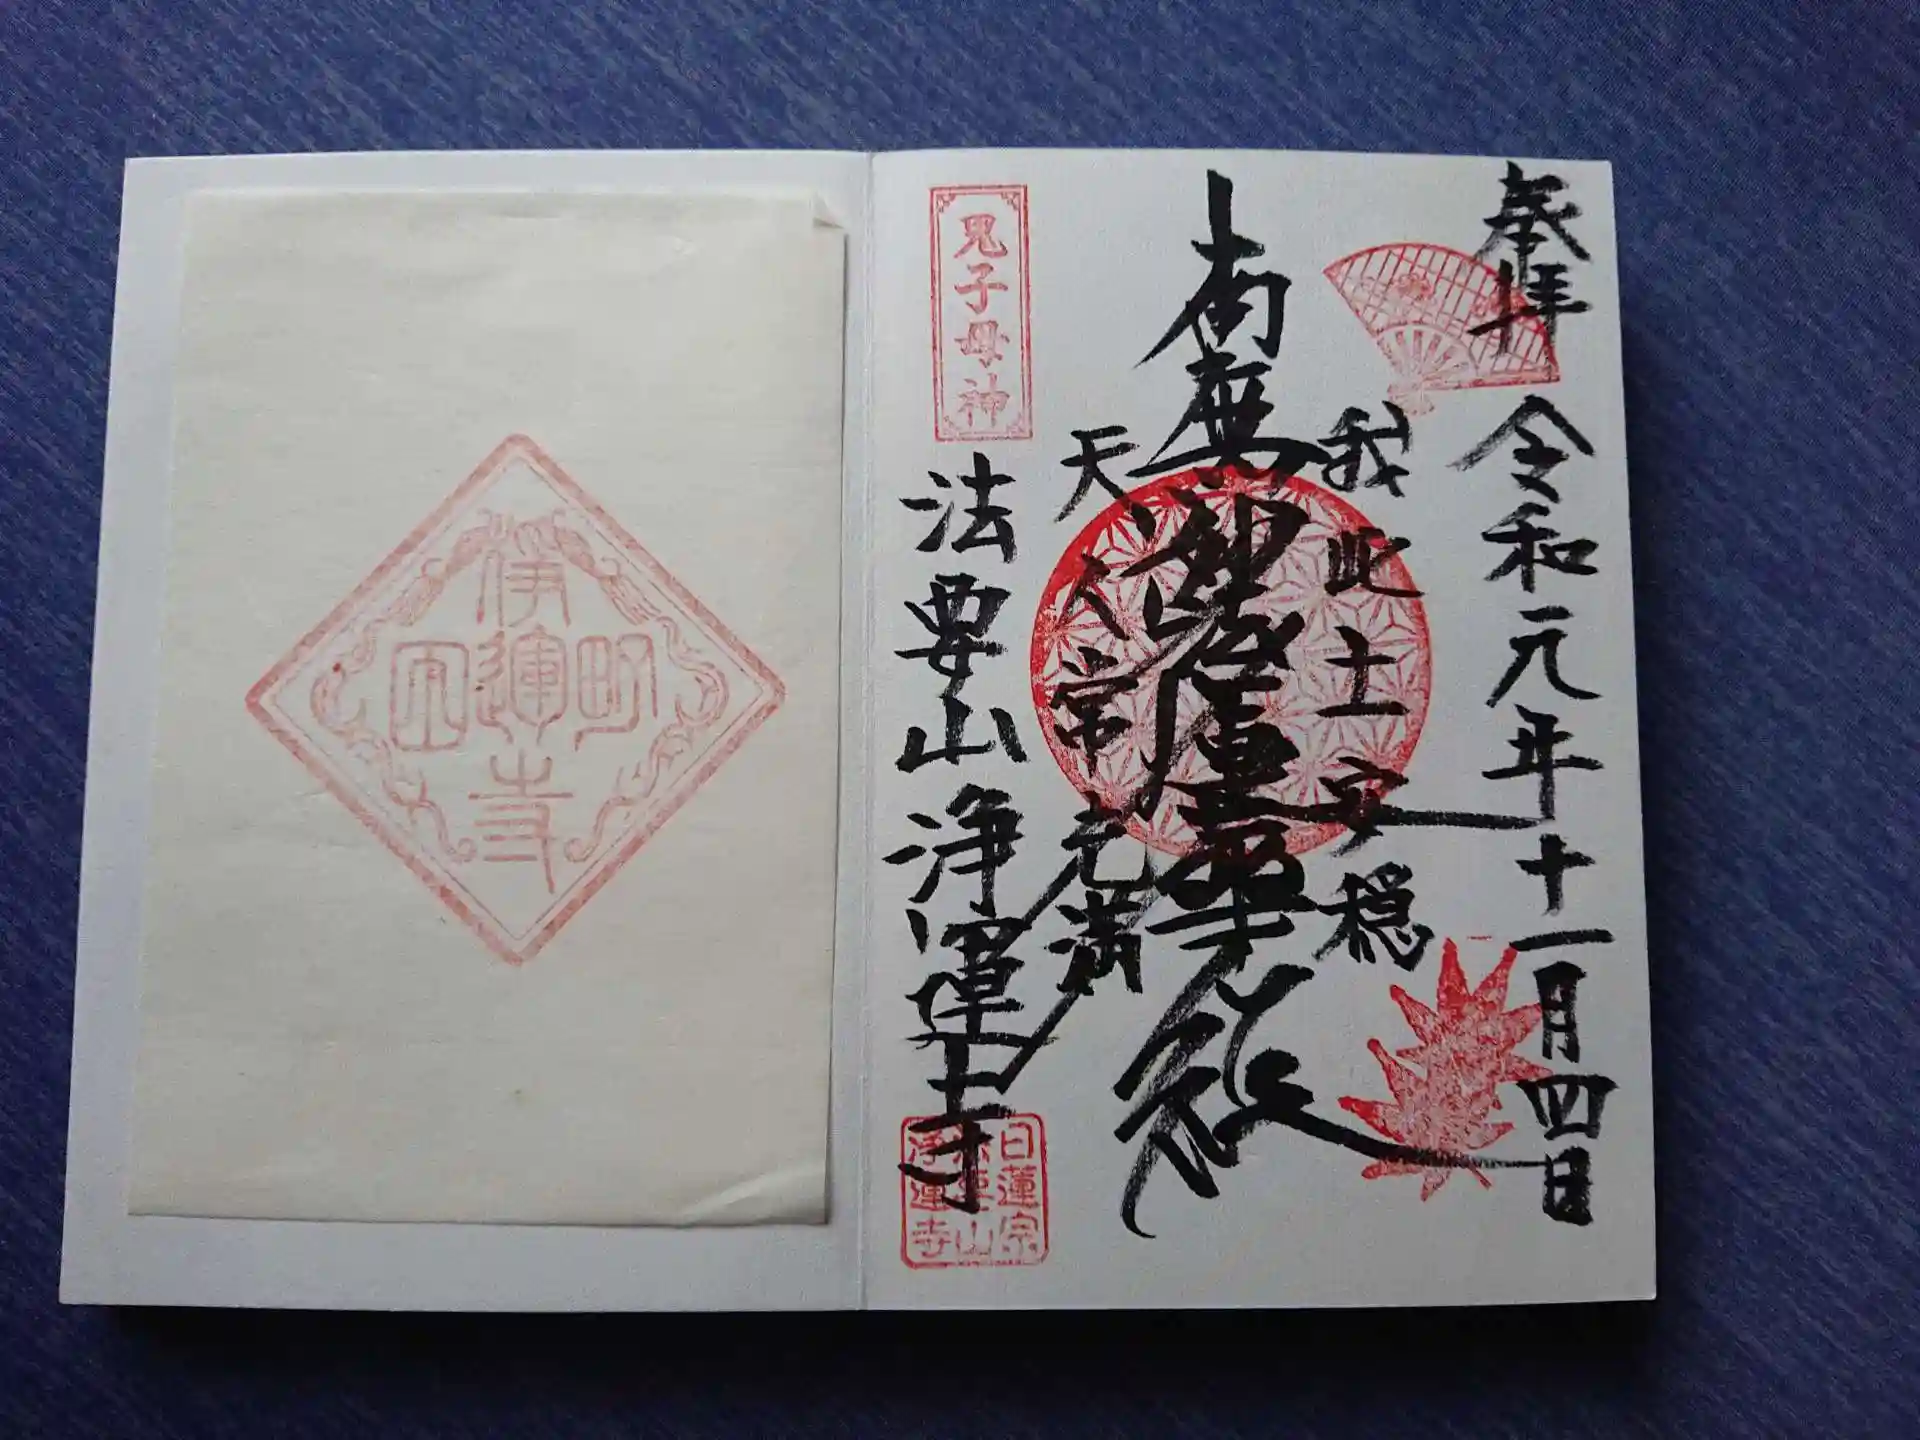 奉拝
令和元年十一月四日
我此土安穏
南無妙法蓮華経
天人常充満
鬼子母神
法要山浄運寺
日蓮宗
法要山
浄運寺
伊
運
寺